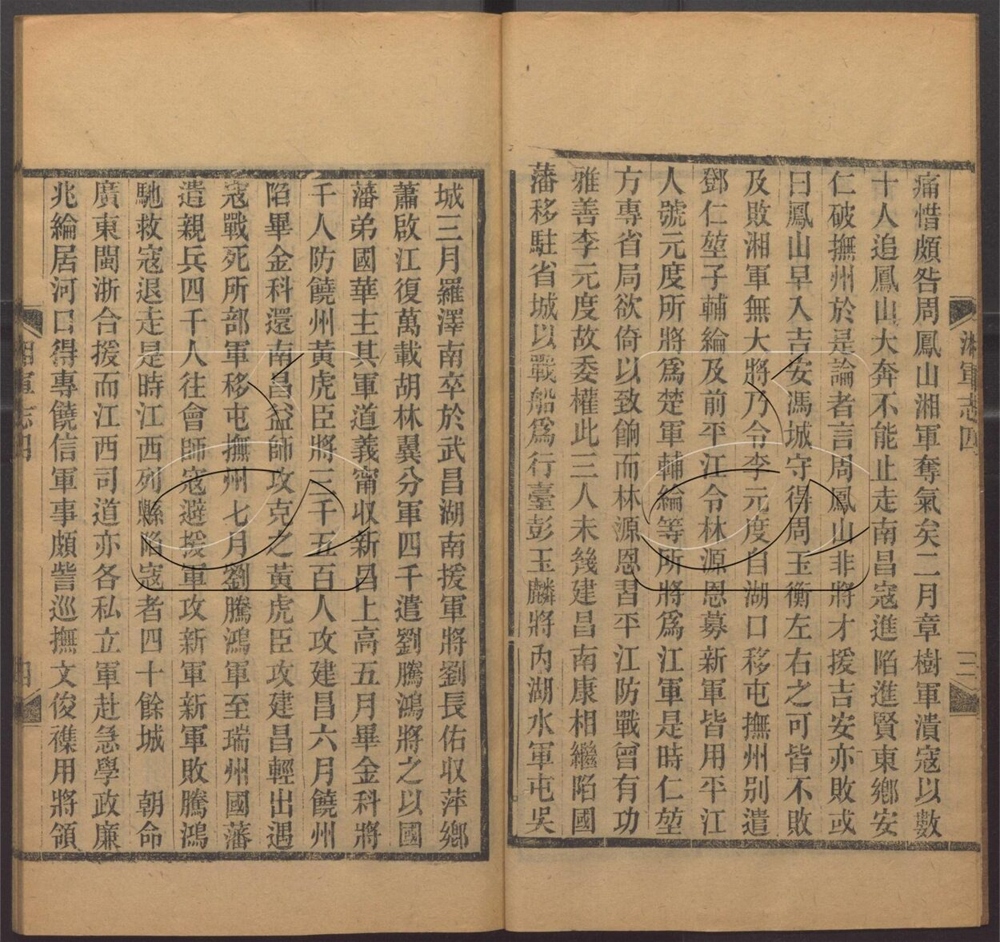 湘軍志四
三
痛惜頗咎周鳳山湘軍奪氣矣二月章樹軍潰寇以數
十人追鳳山大奔不能止走南昌寇進陷進賢東鄉安
仁破撫州於是論者言周鳳山非將才援吉安亦敗或
曰鳳山早入吉安馮城守得周玉衡左右之可皆不敗
及敗湘軍無大將乃令李元度自湖口移屯撫州別遣
鄧仁堃子輔綸及前平江令林源恩募新軍皆用平江
人號元度所將爲楚軍輔綸等所將爲江軍是時仁堃
方專省局欲倚以致餉而林源恩習平江防戰曾有功
雅善李元度故委權此三人未幾建昌南康相繼陷國
藩移駐省城以戰船爲行臺彭玉麟將內湖水軍屯吳
城三月羅澤南卒於武昌湖南援軍將劉長佑收萍鄉
蕭啟江復萬載胡林翼分軍四千遣劉騰鴻將之以國
藩弟國華主其軍道義甯收新昌上高五月畢金科將
千人防饒州黃虎臣將三千五百人攻建昌六月饒州
陷畢金科還南昌益師攻克之黃虎臣攻建昌輕出遇
寇戰死所部軍移屯撫州七月劉騰鴻軍至瑞州國藩
遣親兵四千人往會師寇避援軍攻新軍新軍敗騰鴻
馳救寇退走是時江西列縣陷寇者四十餘城 朝命
廣東閩浙合援而江西司道亦各私立軍赴急學政廉
兆綸居河口得專饒信軍事頗訾巡撫文俊襍用將領
湘軍志四
四